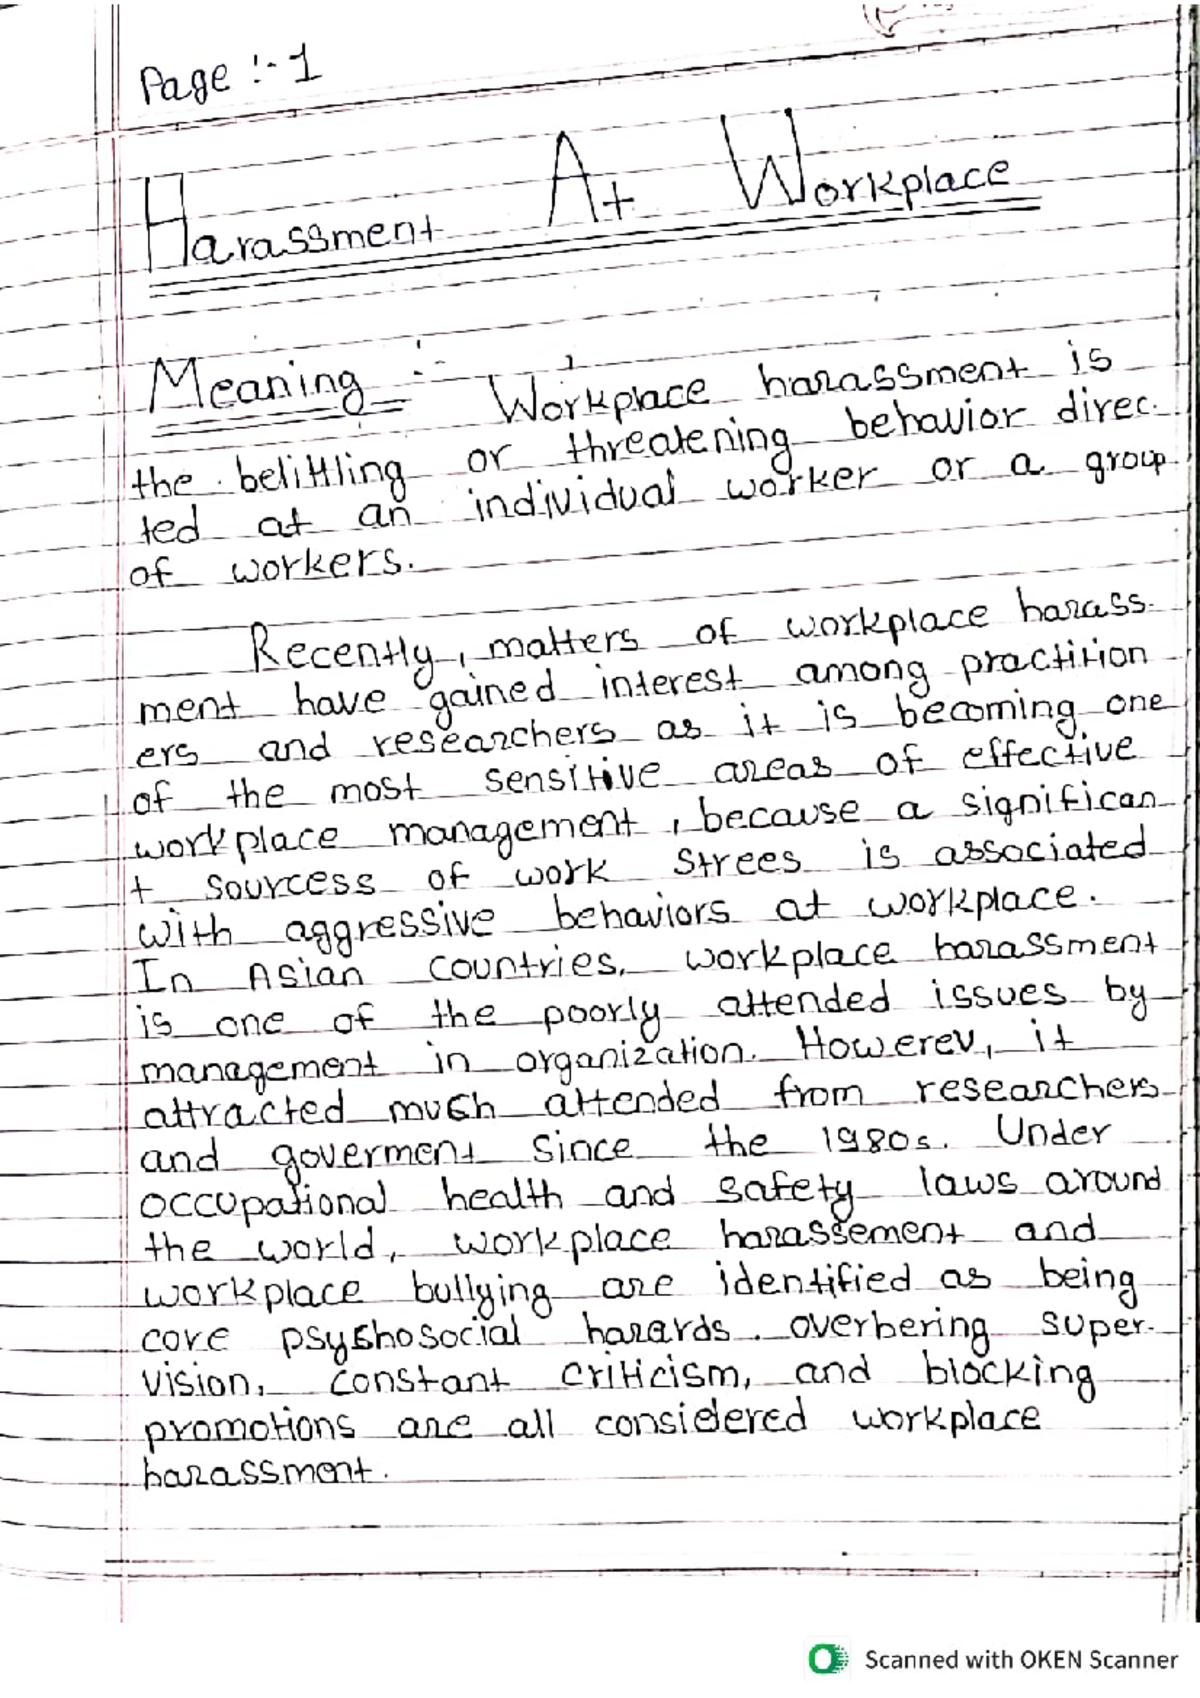 Page :- 1
Harassment At Workplace
Meaning :- Workplace harassment is
the belittling or threatening behavior direc-
ted at an individual worker or a group
of workers.
Recently, matters of workplace harass-
ment have gained interest among practition
ers and researchers as it is becoming one
of the most sensitive areas of effective
workplace management, because a significan
t sourcess of work strees is associated
with aggressive behaviors at workplace.
In Asian countries, workplace harassment
is one of the poorly attended issues by
management in organization. Howerev, it
attracted much attended from researchers
and goverment since the 1980s. Under
occupational health and safety laws around
the world, workplace harassement and
workplace bullying are identified as being
core psychosocial hazards. overbering super-
vision, constant criticism, and blocking
promotions are all considered workplace
harassment.
Scanned with OKEN Scanner